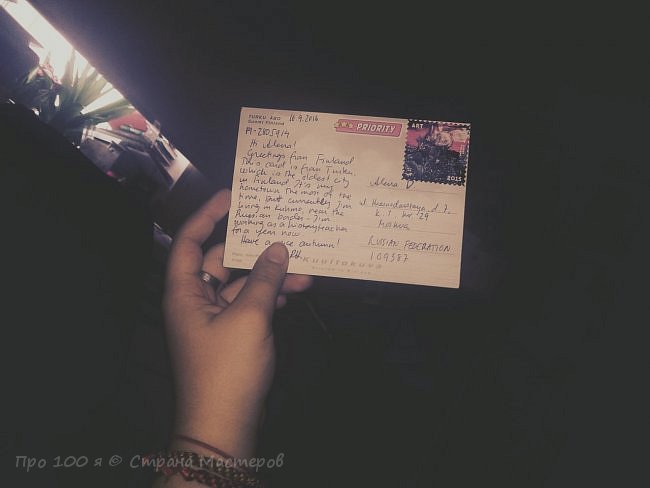 TURKU ÅBO 16.9.2016
Suomi Finland
PRIORITY
ART
2015
FI-2805914
Hi Alena!
Greetings from Finland
This card is from Turku,
which is the oldest city
in Finland. It's my
hometown the most of the
time, but currently I'm
living in Kuhmo, near the
Russian border. I'm
working as a
for a year now.
Have a nice autumn!
Alena
RUSSIAN FEDERATION
109387
Про 100 я © Страна Мастеров